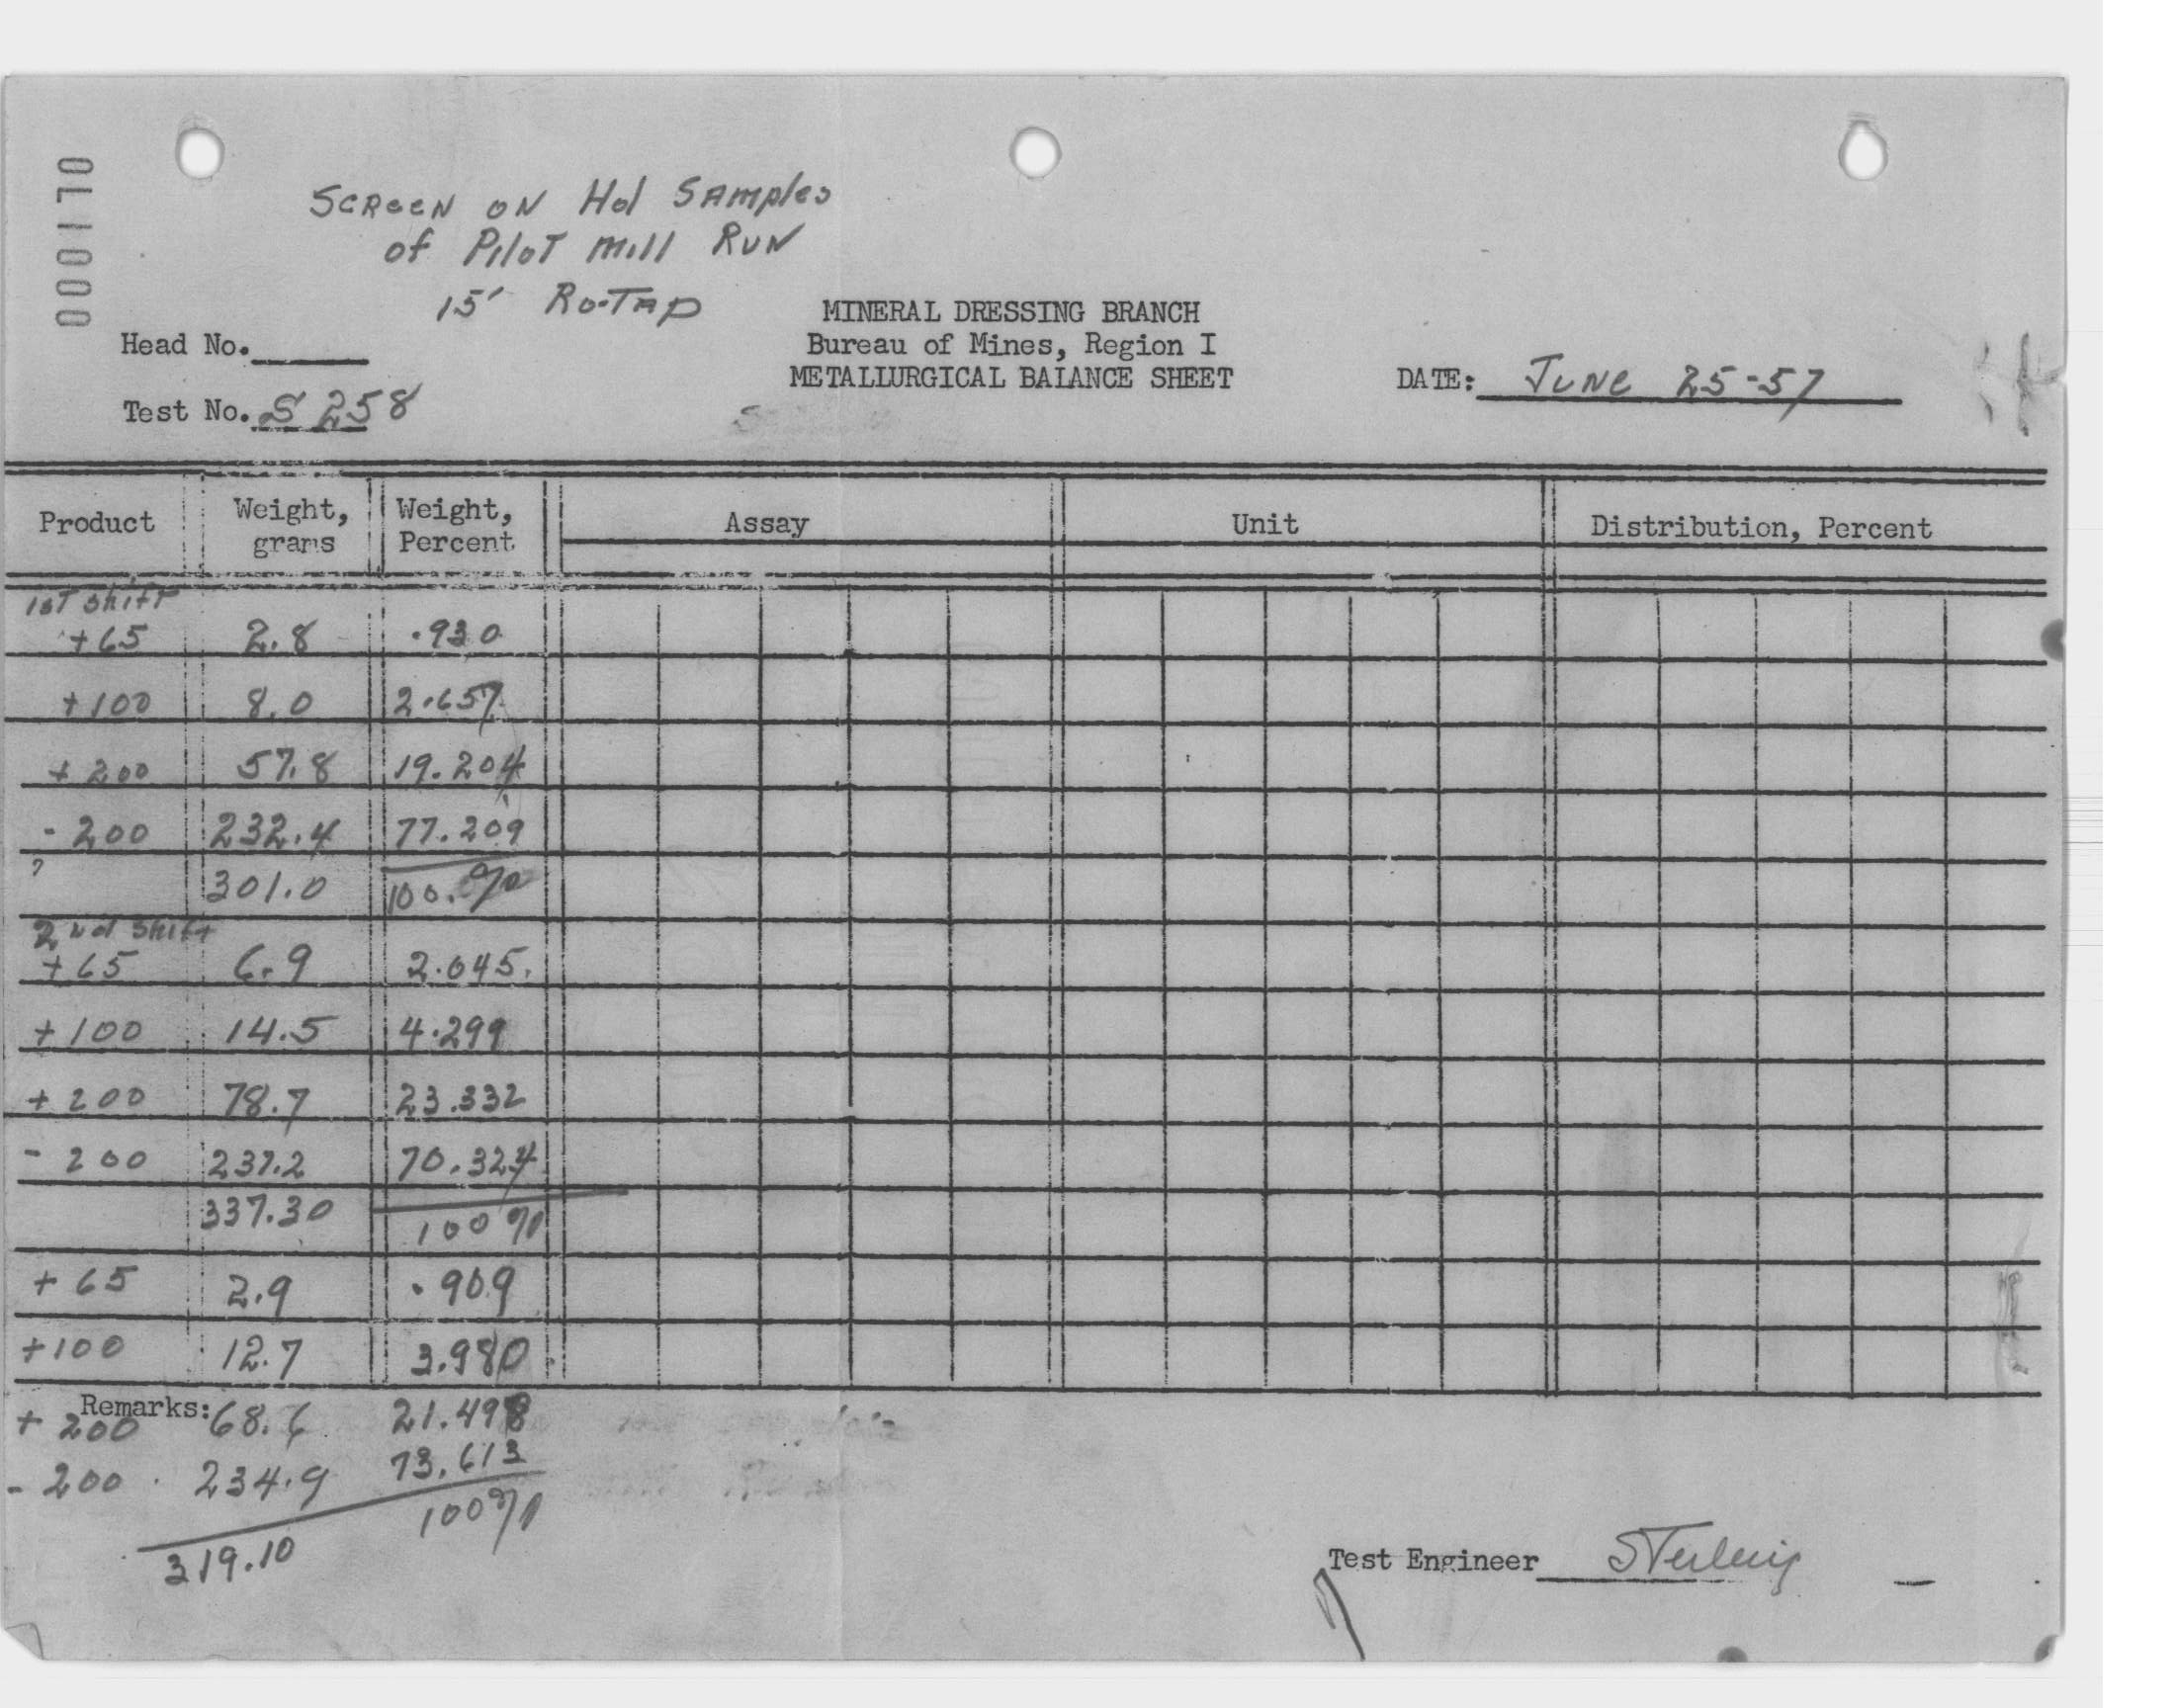 000170
SCREEN ON Hol SAMples
of PiloT Mill RUN
15' Ro-TAP
MINERAL DRESSING BRANCH
Head No.
Bureau of Mines, Region I
METALLURGICAL BALANCE SHEET
DATE: JUNE 25-57
Test No. S 258
Product Weight, grams Weight, Percent Assay Unit Distribution, Percent
1ST shift
+65 2.8 .930
+100 8.0 2.657
+200 57.8 19.204
-200 232.4 77.209
301.0 100.%
2nd shift
+65 6.9 2.045
+100 14.5 4.299
+200 78.7 23.332
-200 237.2 70.324
337.30 100%
+65 2.9 .909
+100 12.7 3.980
Remarks:
+200 68.6 21.498
-200 234.9 73.613
319.10 100%
Test Engineer Sterling